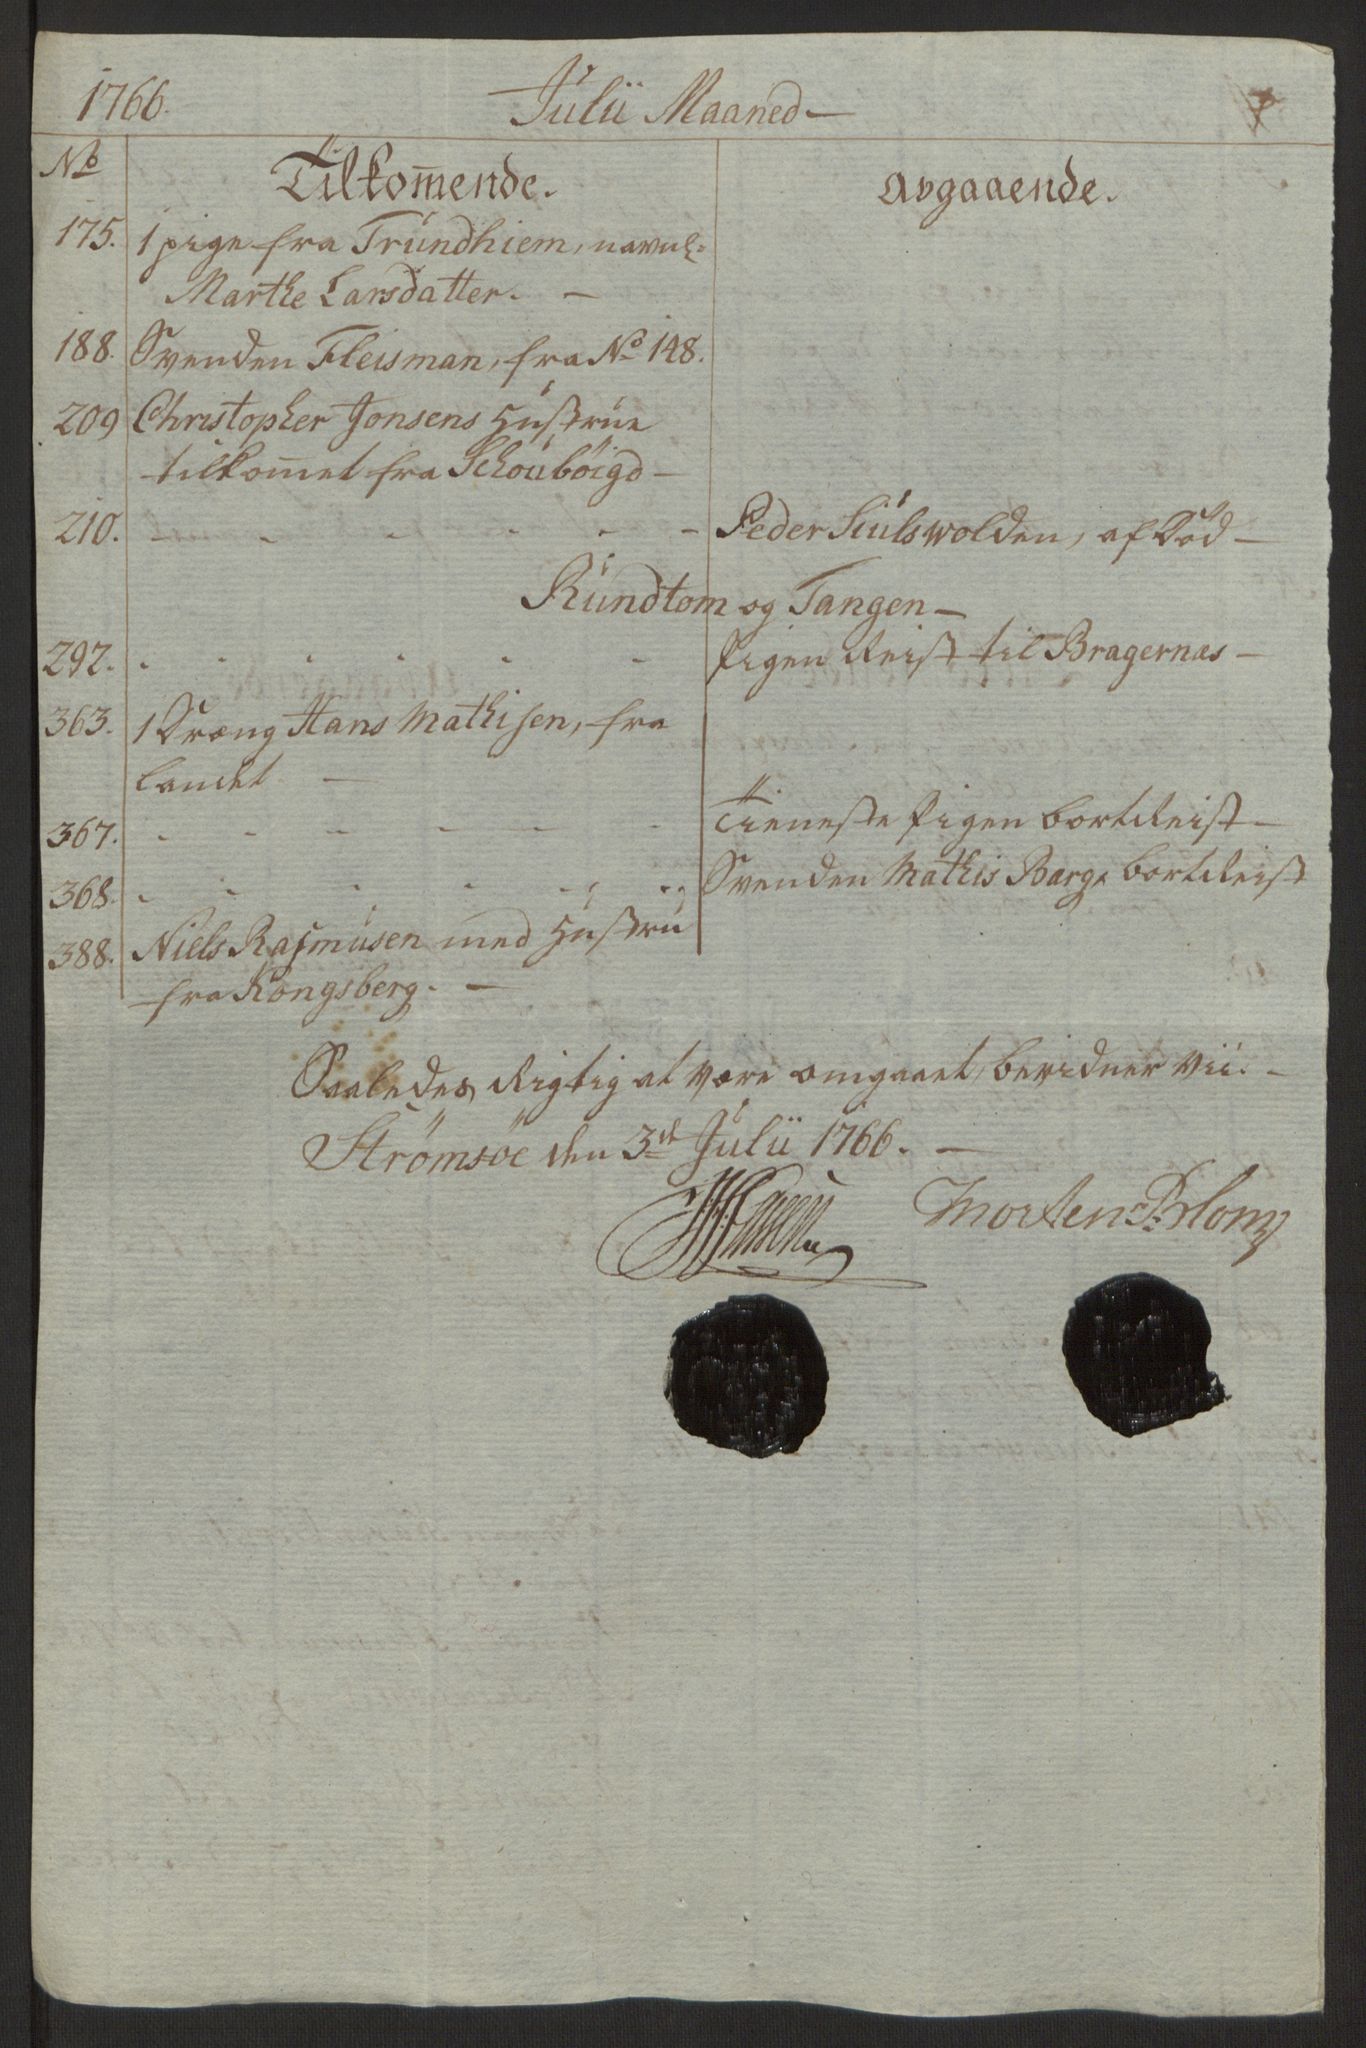 1766. Julii Maaned —
No Tilkom̅ende. Avgaaende.
175. 1 pige fra Trundhiem, navnl:
Marthe Larsdatter. —
188. Svenden Fleisman, fra No 148.
209 Christopher Jonsens Hustrue
tilkom̅et fra Schoubøigd —
210. - - - - - - Peder Siulswolden, af Død —
Rundtom og Tangen —
292. - - - - - - Pigen Reist til Bragernæs —
363. 1 Dræng Hans Mathisen, fra
Landet —
367. - - - - - - Tieneste Pigen bortReist —
368. - - - - - - Svenden Mathis Barg bortReist
388. Niels Rasmusen med Hustru
fra Kongsberg. —
Saaledes Rigtig at være omgaaet, bevidner vii. —
Strømsøe den 3die Julii 1766. —
Morten Blom